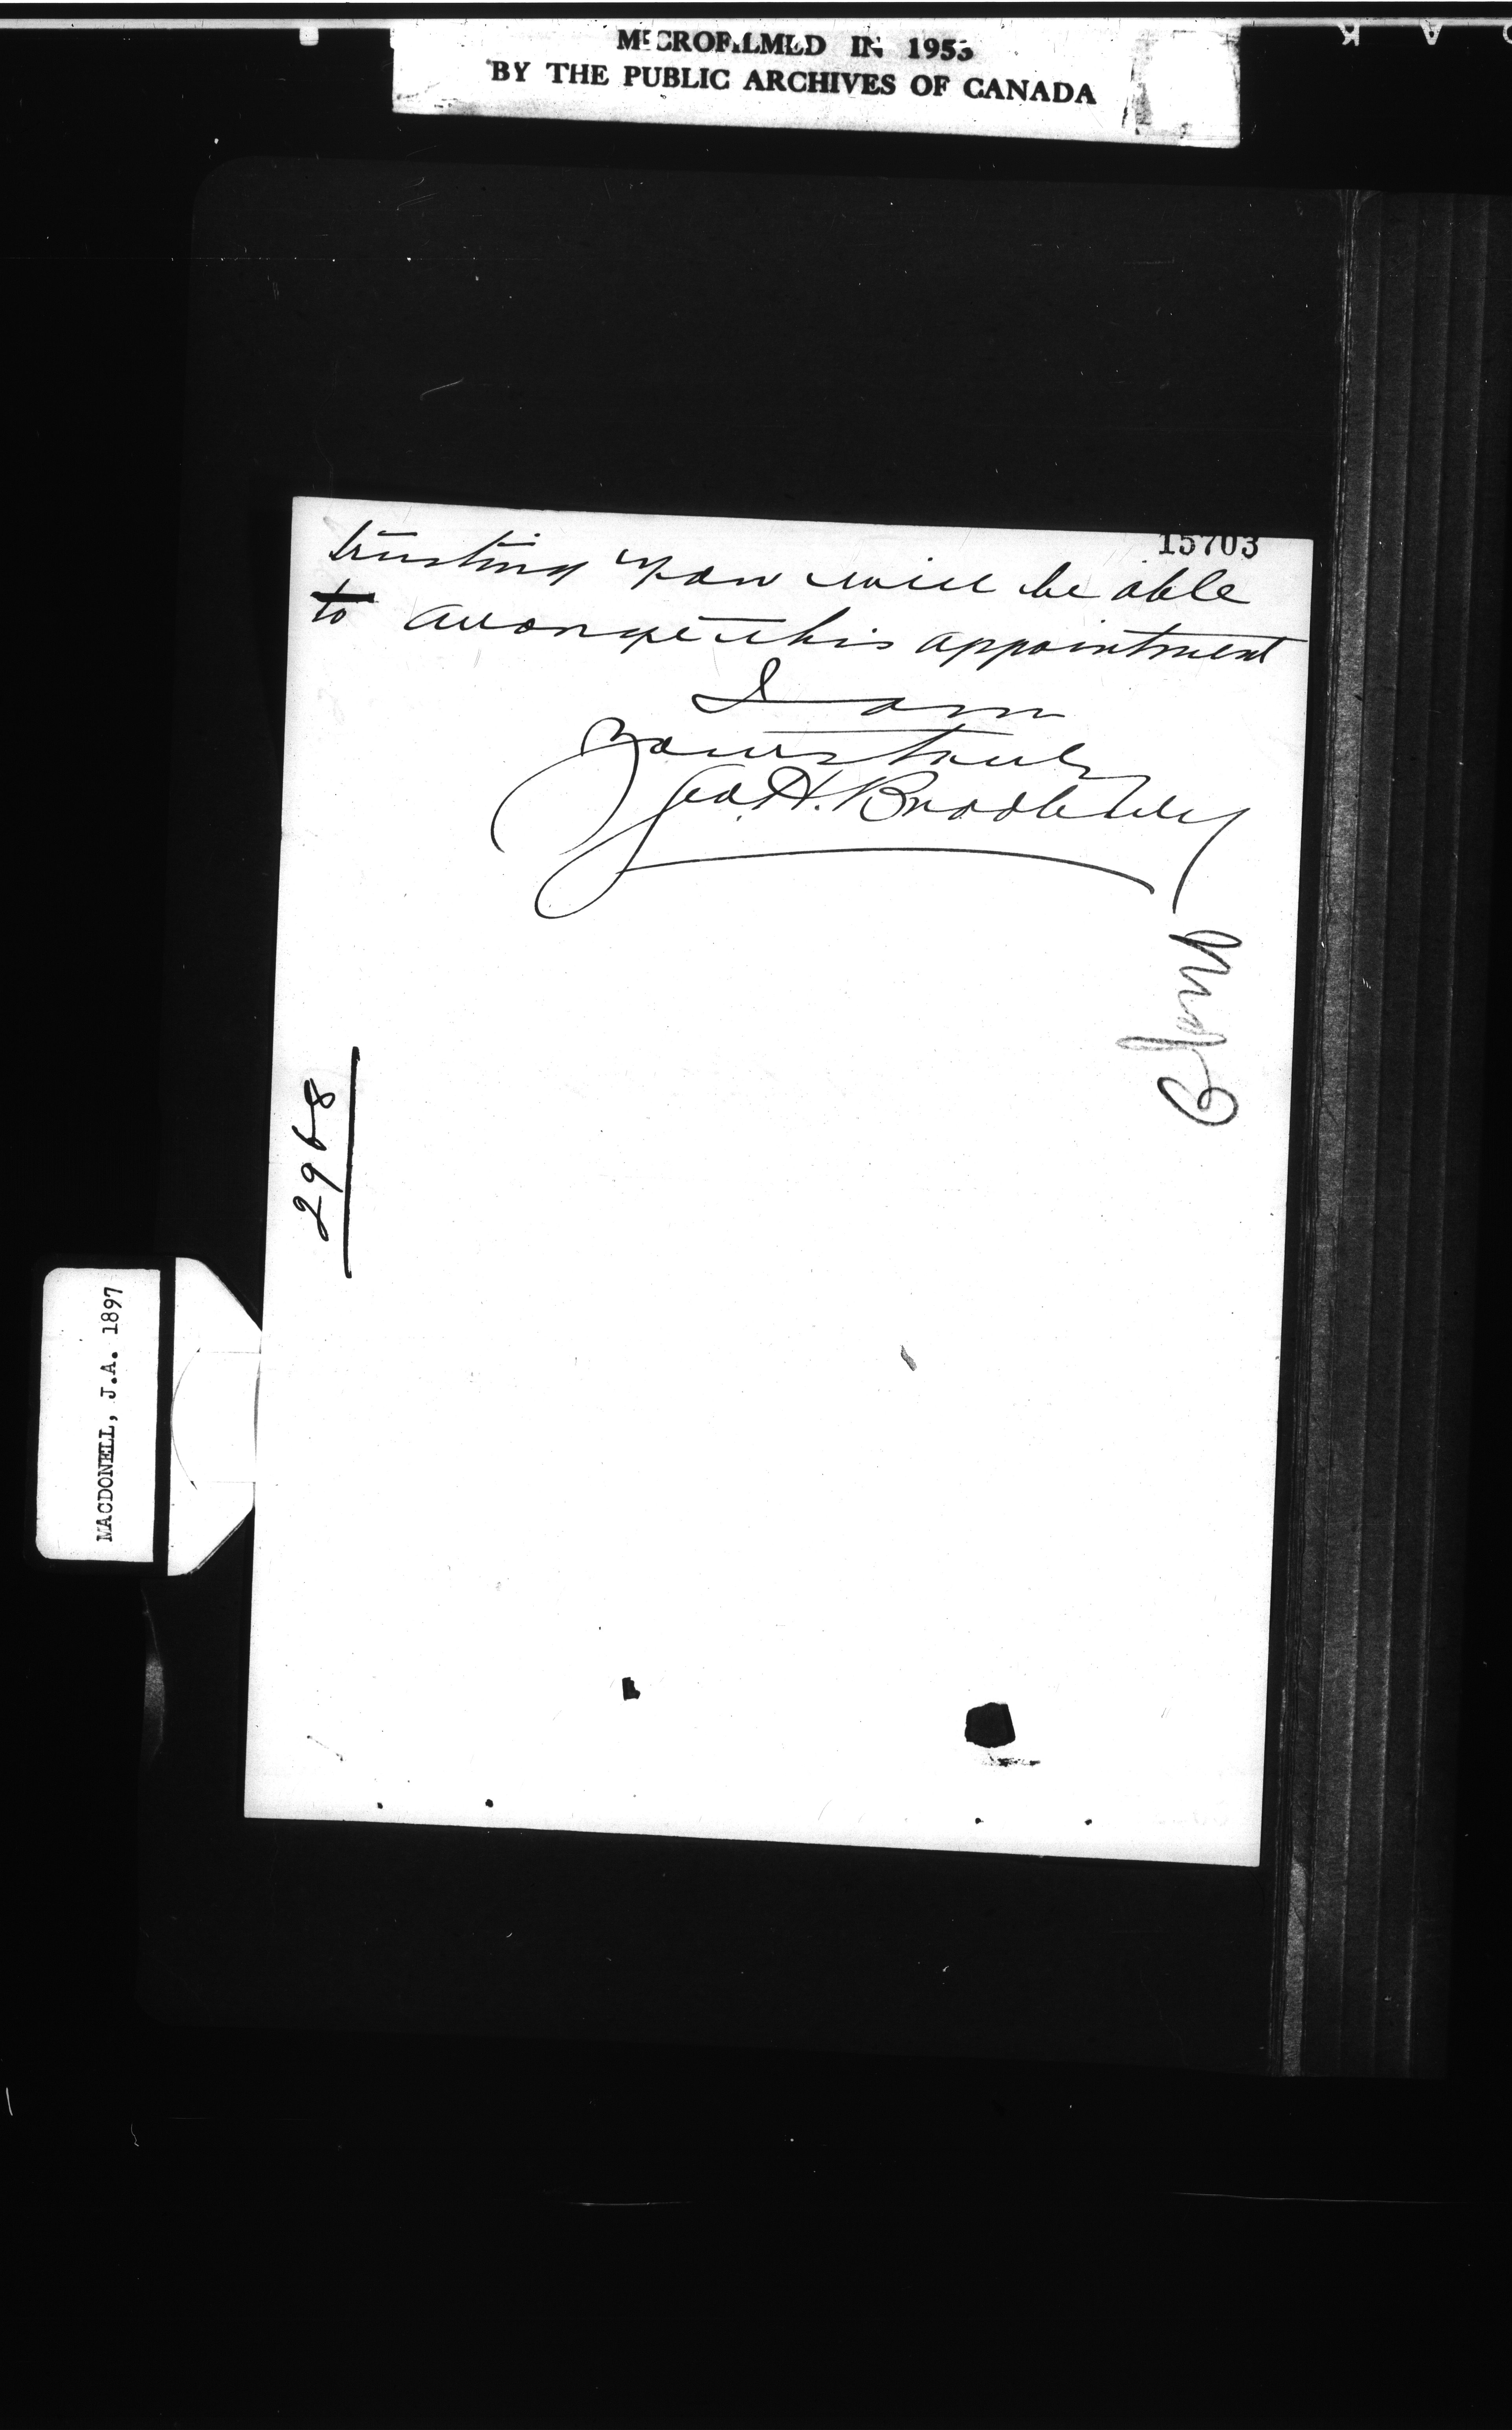 MICROFILMED IN 1955
BY THE PUBLIC ARCHIVES OF CANADA
15703
trusting you will be able
to arrange this appointment
I am
Yours truly
Geo. H.
2968
MACDONELL, J.A. 1897